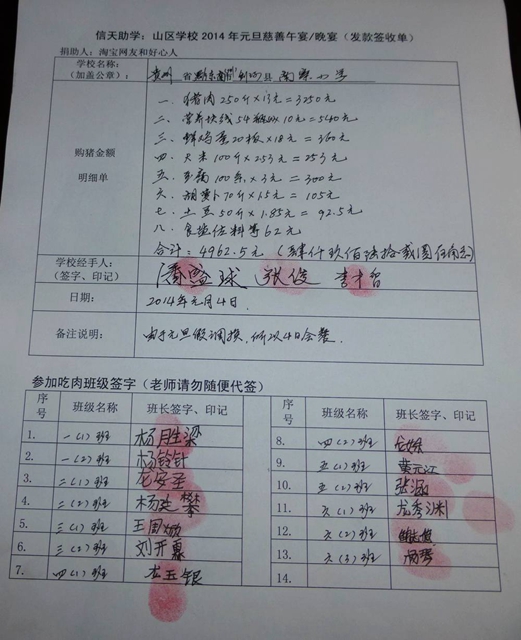 信天助学：山区学校 2014 年元旦慈善午宴/晚宴（发款签收单）
捐助人：淘宝网友和好心人
学校名称：
（加盖公章）： 贵州 省 县 小学
购猪金额
明细单
一、猪肉 250斤×13元=3250元
二、 54 ×10元=540元
三、鲜鸡蛋20板×18元=360元
四、大米100斤×2.53元=253元
五、 100 ×3元=300元
六、胡萝卜70斤×1.5元=105元
七、土豆50斤×1.85元=92.5元
八、食盐佐料等62元
合计：4962.5元（肆仟玖佰陆拾贰圆伍角）
学校经手人：
（签字、印记） 潘盛球 张俊
日期： 2014年元月4日
备注说明： 由于元旦假调换，所以4日会餐。
参加吃肉班级签字（老师请勿随便代签）
序号 班级名称 班长签字、印记
1. 一（1）班 杨胜梁
2. 一（2）班 杨铃针
3. 二（1）班 龙安圣
4. 二（2）班
5. 三（1）班
6. 三（2）班 刘开惠
7. 四（1）班
序号 班级名称 班长签字、印记
8. 四（2）班
9. 五（1）班
10. 五（2）班
11. 六（1）班
12. 六（2）班
13. 六（3）班
14.